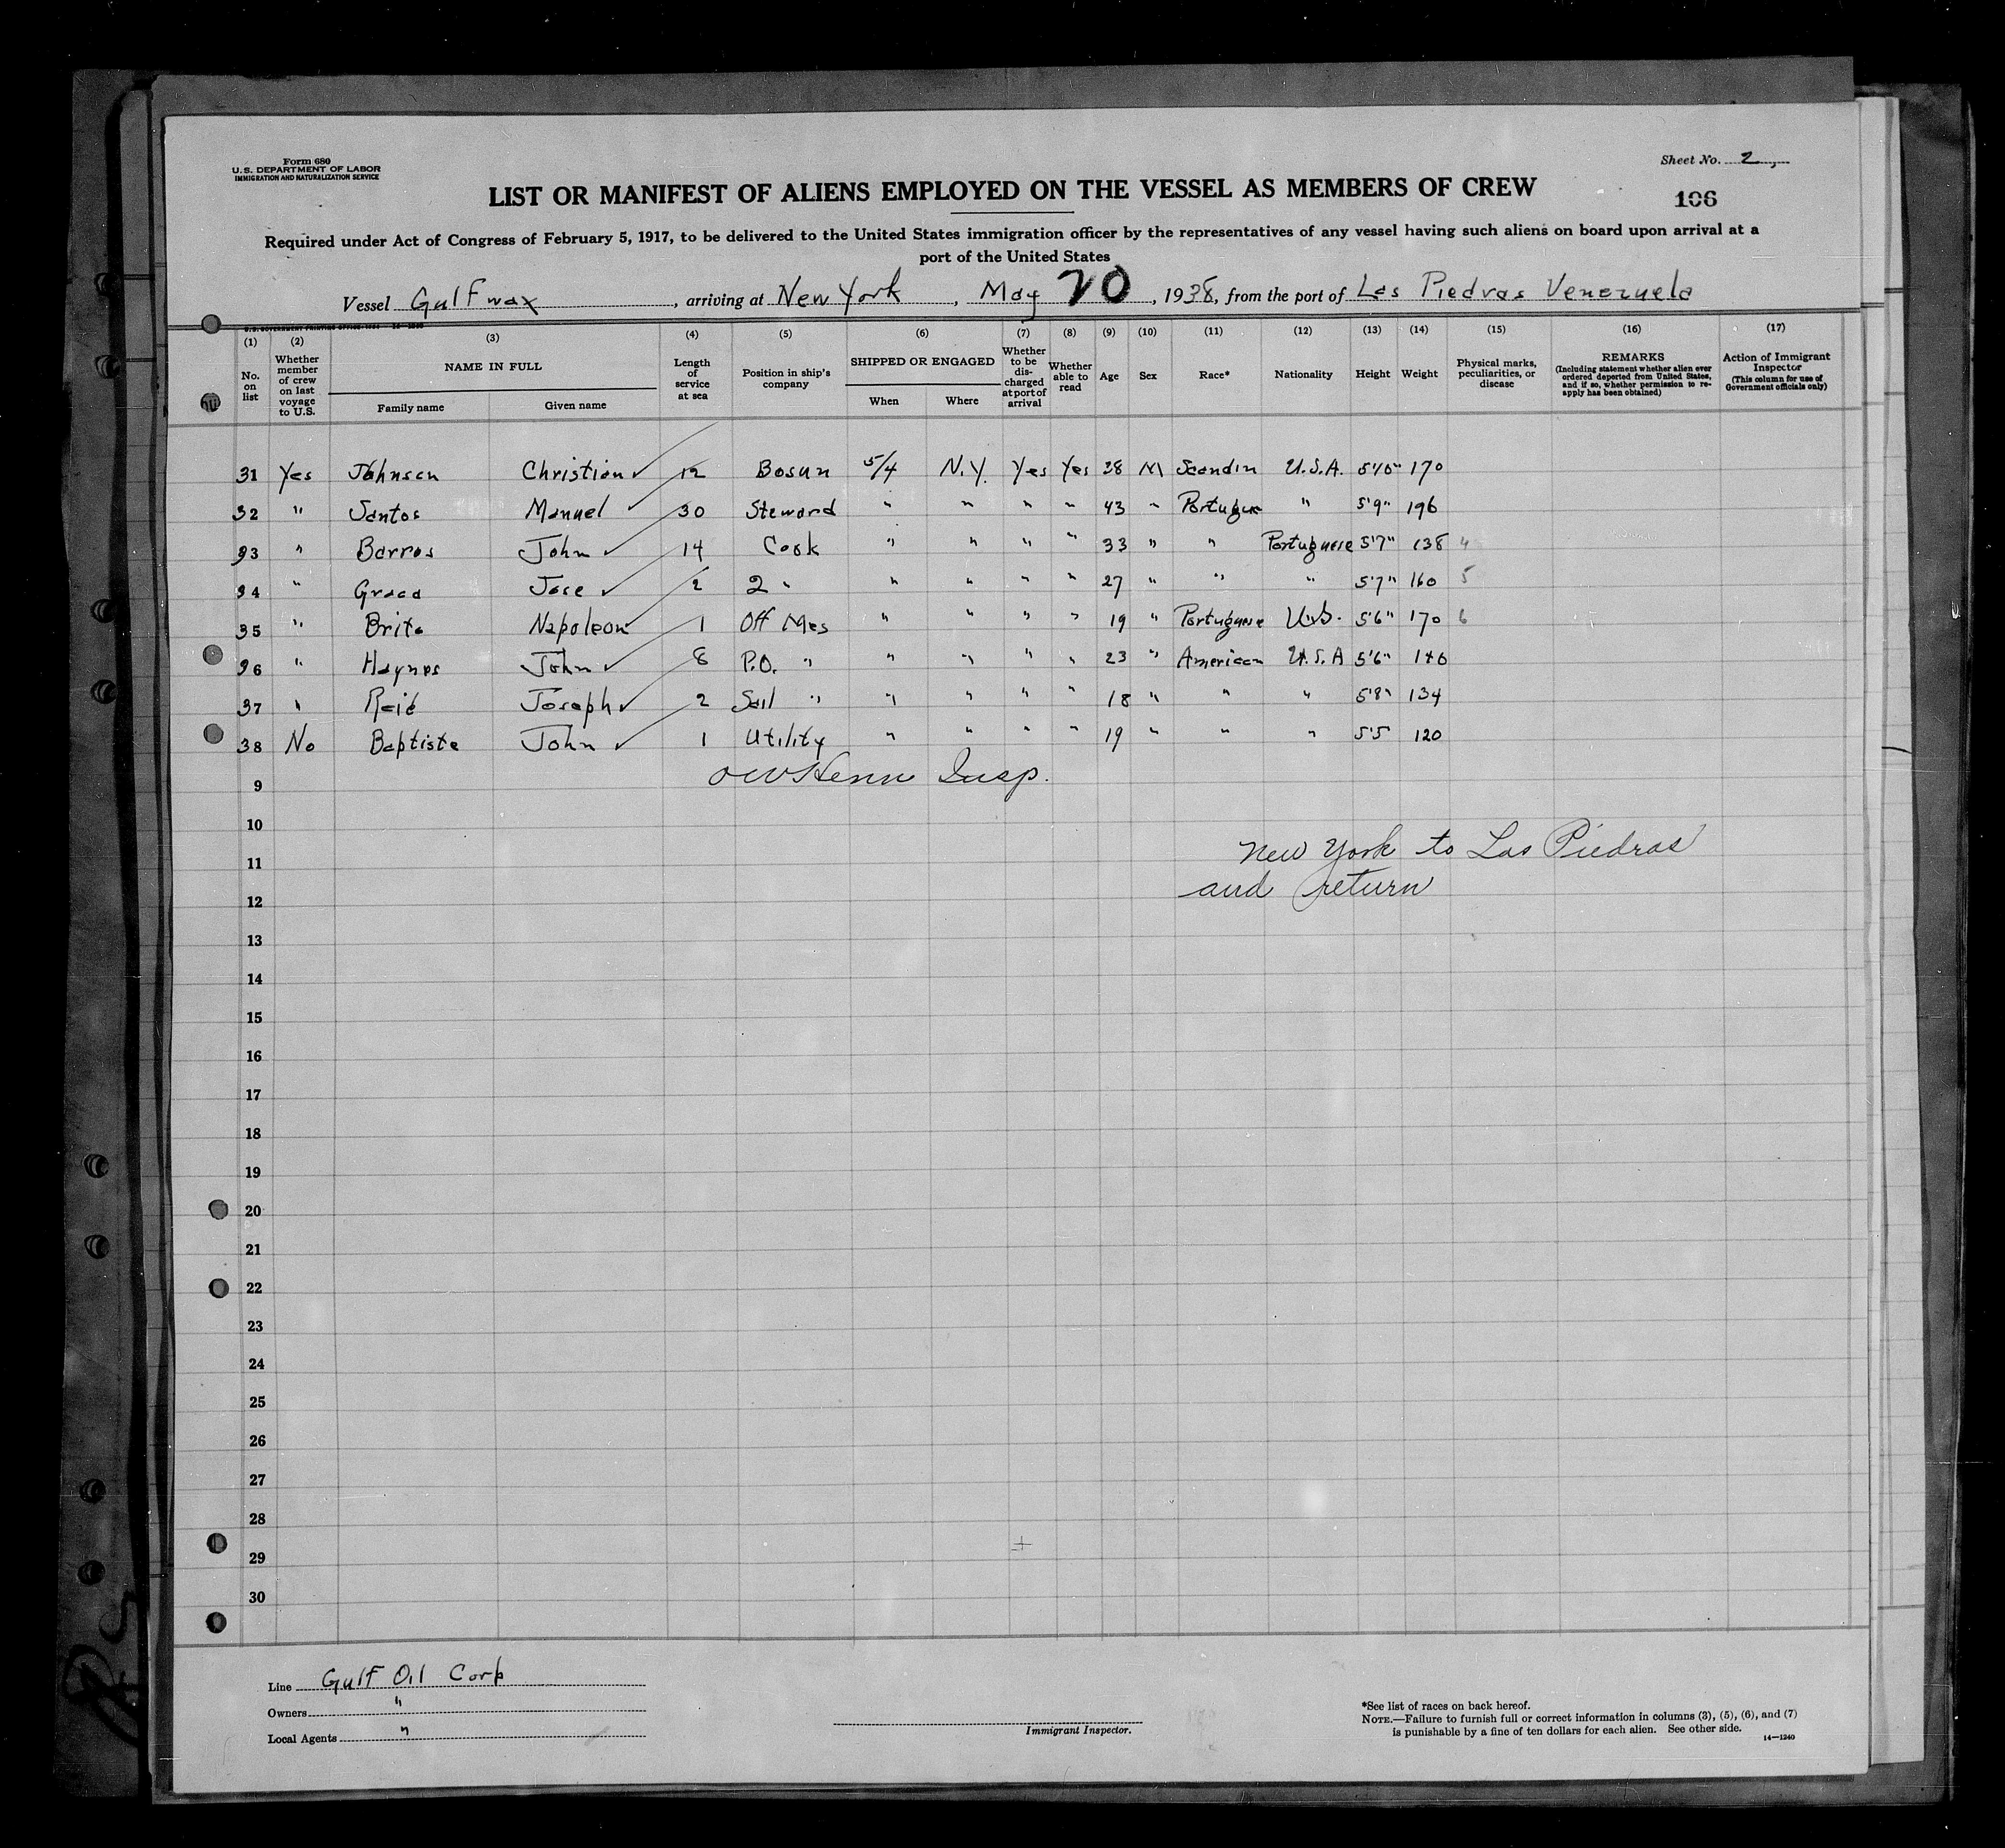 Form 680
U.S. DEPARTMENT OF LABOR
IMMIGRATION AND NATURALIZATION SERVICE
Sheet No. 2,
LIST OR MANIFEST OF ALIENS EMPLOYED ON THE VESSEL AS MEMBERS OF CREW
106
Required under Act of Congress of February 5, 1917, to be delivered to the United States immigration officer by the representatives of any vessel having such aliens on board upon arrival at a
port of the United States
Vessel Gulfwax, arriving at New York, May 20, 1938, from the port of Las Piedras Venezuela
(1) (2) (3) (4) (5) (6) (7) (8) (9) (10) (11) (12) (13) (14) (15) (16) (17)
No. on list
Whether member of crew on last voyage to U.S.
NAME IN FULL
Family name Given name
Length of service at sea
Position in ship's company
SHIPPED OR ENGAGED
When Where
Whether to be discharged at port of arrival
Whether able to read
Age
Sex
Race*
Nationality
Height
Weight
Physical marks, peculiarities, or disease
REMARKS
(Including statement whether alien ever ordered deported from United States, and if so, whether permission to re-apply has been obtained)
Action of Immigrant Inspector
(This column for use of Government officials only)
31 Yes Johnsen Christian ✓ 12 Bosun 5/4 N.Y. Yes Yes 38 M Scandin U.S.A. 5'10" 170
32 " Santos Manuel ✓ 30 Steward " " " " 43 " Portuguse " 5'9" 196
33 " Barros John ✓ 14 Cook " " " " 33 " " Portuguese 5'7" 138 4
34 " Graca Jose ✓ 2 2 " " " " " 27 " " " 5'7" 160 5
35 " Brito Napoleon 1 Off Mes " " " " 19 " Portuguese U.S. 5'6" 170 6
36 " Haynes John ✓ 8 P.O. " " " " " 23 " American U.S.A 5'6" 140
37 " Reid Joseph ✓ 2 Sail " " " " " 18 " " " 5'8" 134
38 No Baptiste John ✓ 1 Utility " " " " 19 " " " 5'5 120
Insp.
9
10
New York to Las Piedras
11
and return
12
13
14
15
16
17
18
19
20
21
22
23
24
25
26
27
28
29
30
Line Gulf Oil Corp
Owners "
Local Agents "
Immigrant Inspector.
*See list of races on back hereof.
NOTE.—Failure to furnish full or correct information in columns (3), (5), (6), and (7)
is punishable by a fine of ten dollars for each alien. See other side.
14—1240